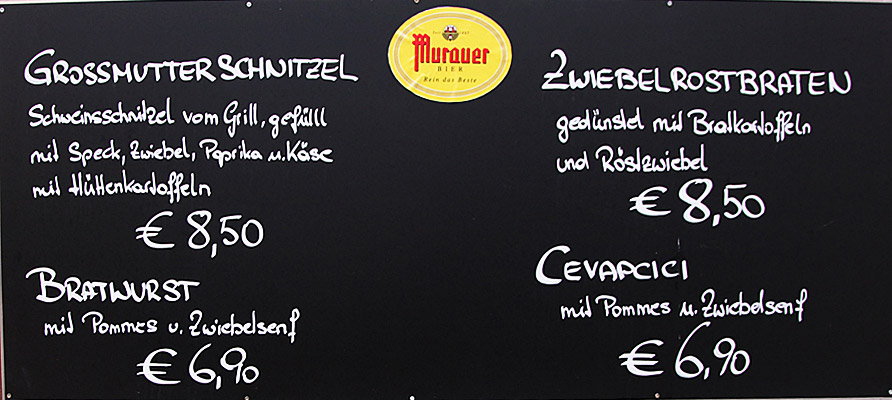 Murauer
BIER
Rein das Beste
GROSSMUTTERSCHNITZEL
Schweinsschnitzel vom Grill, gefüllt
mit Speck, Zwiebel, Paprika u. Käse
mit Hüttenkartoffeln
€ 8,50
BRATWURST
mit Pommes u. Zwiebelsenf
€ 6,90
ZWIEBELROSTBRATEN
gedünstet mit Bratkartoffeln
und Röstzwiebel
€ 8,50
CEVAPCICI
mit Pommes u. Zwiebelsenf
€ 6,90